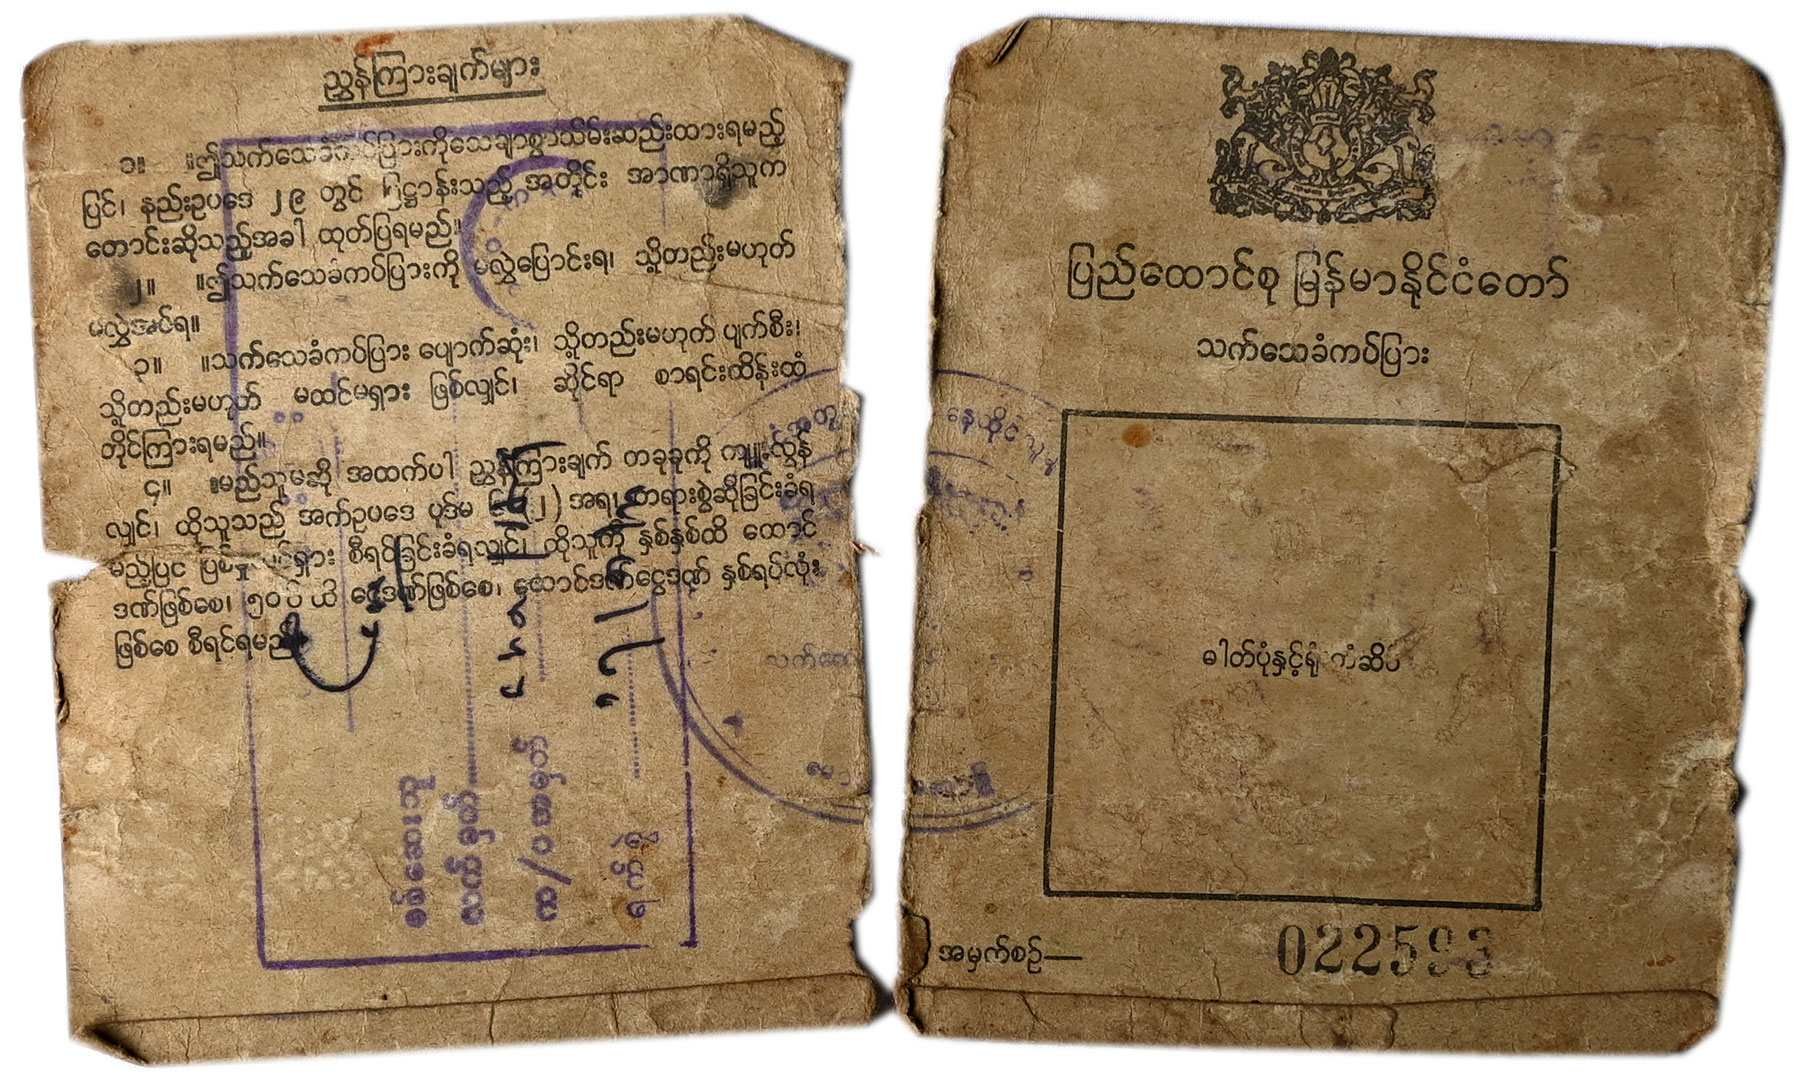 ညွှန်ကြားချက်များ
၁။ ။ဤသက်သေခံကပ်ပြားကိုသေချာစွာသိမ်းဆည်းထားရမည့်
ပြင်၊ နည်းဥပဒေ ၂၉ တွင် ပြဋ္ဌာန်းသည့် အတိုင်း အာဏာရှိသူက
တောင်းဆိုသည့်အခါ ထုတ်ပြရမည်။
၂။ ။ဤသက်သေခံကပ်ပြားကို မလွှဲပြောင်းရ၊ သို့တည်းမဟုတ်
မလွှဲအပ်ရ။
၃။ ။သက်သေခံကပ်ပြား ပျောက်ဆုံး၊ သို့တည်းမဟုတ် ပျက်စီး၊
သို့တည်းမဟုတ် မထင်မရှား ဖြစ်လျှင်၊ ဆိုင်ရာ စာရင်းထိန်းထံ
တိုင်ကြားရမည်။
၄။ ။မည်သူမဆို အထက်ပါ ညွှန်ကြားချက် တခုခုကို ကျူးလွန်
လျှင်၊ ထိုသူသည် အက်ဥပဒေ ပုဒ်မ (၂) အရ၊ တရားစွဲဆိုခြင်းခံရ
မည့်ပြင် ပြစ်မှုထင်ရှား စီရင်ခြင်းခံရလျှင်၊ ထိုသူကို နှစ်နှစ်ထိ ထောင်
ဒဏ်ဖြစ်စေ၊ ငွေဒဏ်ဖြစ်စေ၊ ထောင်ဒဏ်ငွေဒဏ် နှစ်ရပ်လုံး
ဖြစ်စေ စီရင်ရမည်
စစ်ဆေးသူ
လက်မှတ်
က/ပအမှတ်
ရက်စွဲ
ပြည်ထောင်စု မြန်မာနိုင်ငံတော်
သက်သေခံကပ်ပြား
နေထိုင်သူ
ဓါတ်ပုံနှင့်ရုံးတံဆိပ်
အမှက်စဉ်—
022593